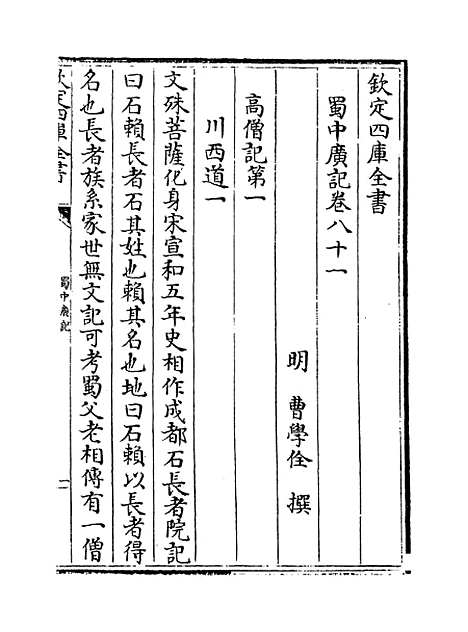 欽定四庫全書
蜀中廣記卷八十一
明 曹學佺 撰
高僧記第一
川西道一
文殊菩薩化身宋宣和五年史相作成都石長者院記
曰石賴長者石其姓也賴其名也地曰石賴以長者得
名也長者族系家世無文記可考蜀父老相傳有一僧
欽定四庫全書
蜀中廣記
一